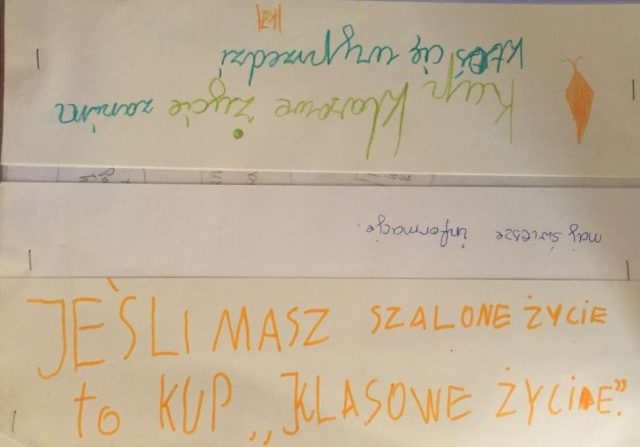 Kup klasowe życie zanim
ktoś cię wyprzedzi
maj świesze informacje!
JEŚLI MASZ SZALONE ŻYCIE
to KUP „KLASOWE ŻYCIE".